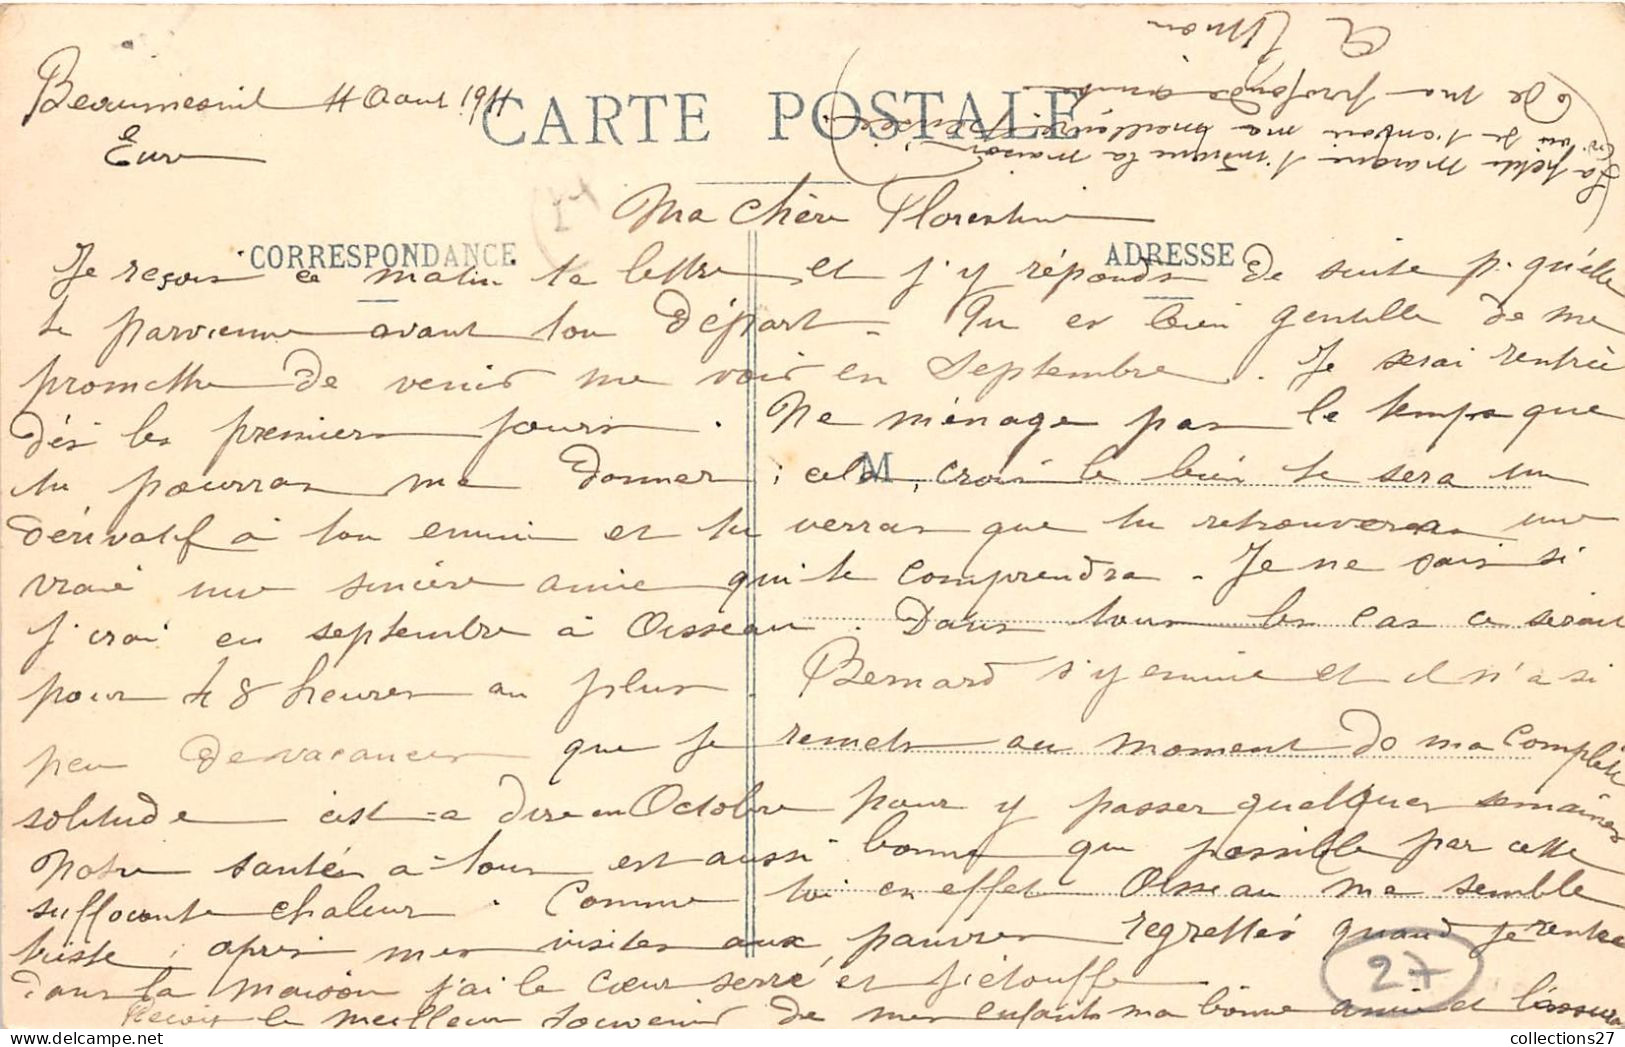 Beaumesnil 11 Aout 1911
Eure
CARTE POSTALE
Ma chère Florentine
CORRESPONDANCE
ADRESSE
Je reçois ce matin ta lettre et j'y réponds de suite p. qu'elle
te parvienne avant ton départ - Tu es bien gentille de me
promettre de venir me voir en Septembre. Je serai rentrée
dès les premiers jours. Ne ménage pas le temps que
tu pourras me donner ; cela, crois le bien te sera un
M
dérivatif à ton ennui et tu verras que tu retrouveras une
vraie une sincère amie qui te comprendra - Je ne sais si
j'irai en septembre à Oisseau. Dans tous les cas ce serait
pour 48 heures au plus. Bernard s'y ennuie et il n'a si
peu de vacances que je remets au moment de ma complète
solitude cist-a dire en Octobre pour y passer quelques semaines
Notre santée a tous est aussi bonne que possible par cette
suffocante chaleur. Comme toi en effet Oisseau me semble
triste ; après mes visites aux pauvres regrettés quand je rentre
dans la maison j'ai le cœur serré et j'étouffe
Reçois le meilleur souvenir de mes enfants ma bonne amie et l'assura
La petite marque t'indique la maison
où de t'envoie ma meilleure pensée
de ma profonde amit
27
collections27